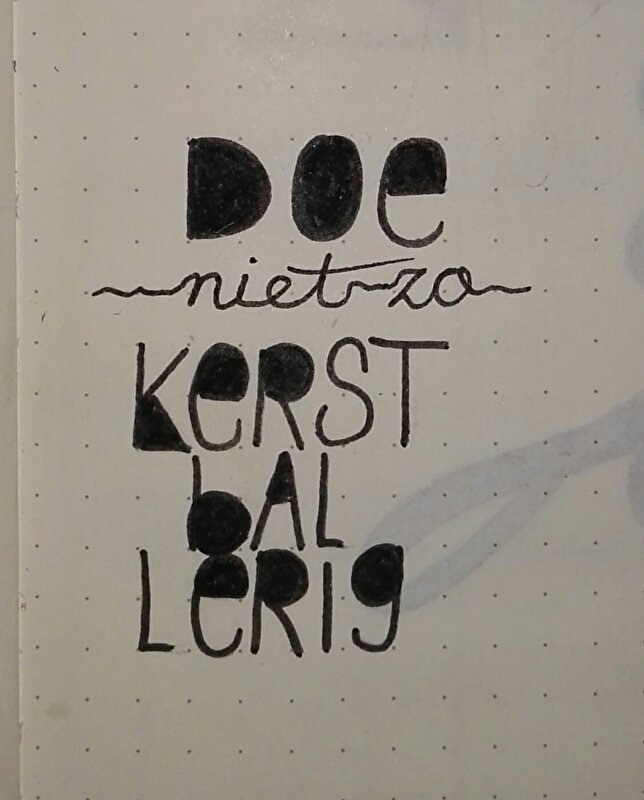 DOe
niet zo
KeRST
bAL
LeRIg